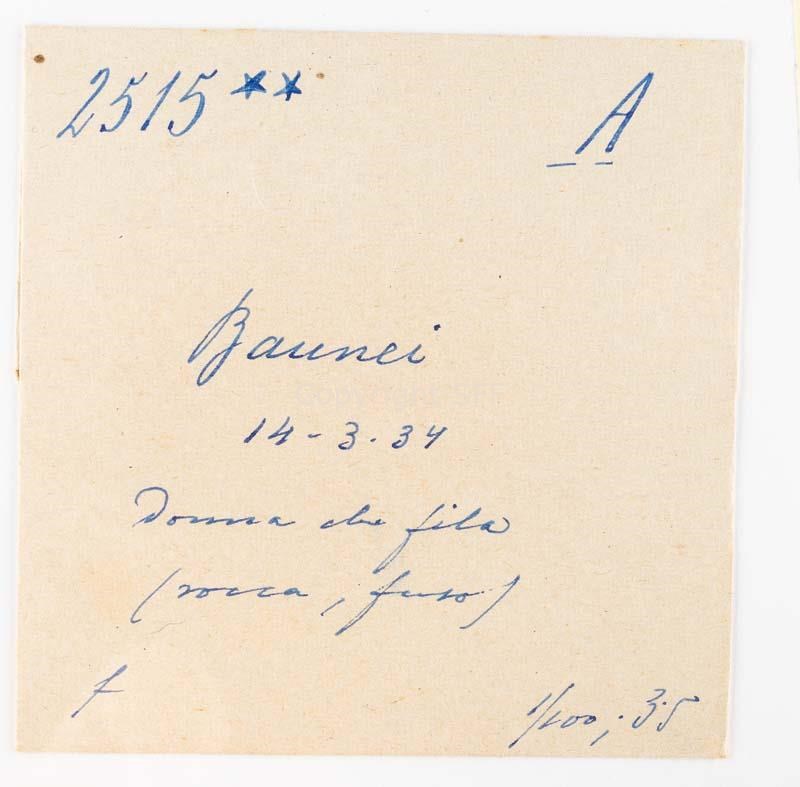 2515 ** A
Baunei
14-3.34
Donna che fila
(rocca, fuso)
f 1/100; 3.5